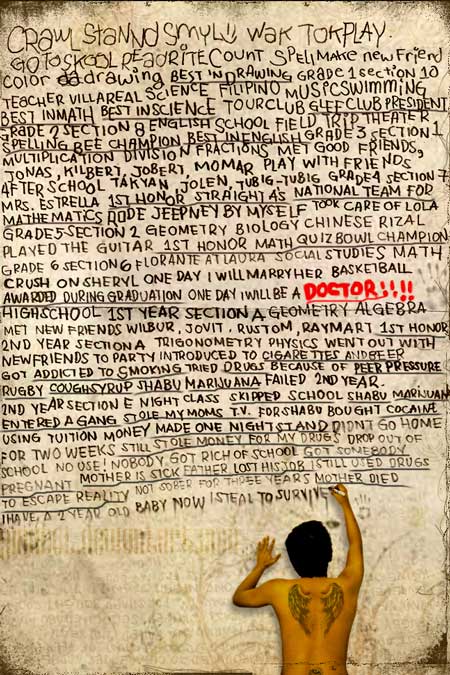 CRawL StaNNd SmyL!! wak ToKPLAY.
GOTOSKOOL REaDRITE COUNT SpeLL Make new FRieND
COLOR aa.drawing BEST 'N DRAWING GRADE 1 section 10
TEACHER VILLAREAL SCIENCE FILIPINO MUSICSWIMMING
BEST INMATH BEST IN SCIENCE TOUR CLUB GLEE CLUB PRESIDENT
GRADE 2 SECTION 8 ENGLISH SCHOOL FIELD TRIP THEATER
SPELLING BEE CHAMPION BEST IN ENGLISH GRADE 3 SECTION 1
MULTIPLICATION DIVISION FRACTIONS, MET GOOD FRIENDS,
JONAS, KILBERT, JOBERT, MOMAR PLAY WITH FRIENDS
AFTER SCHOOL TAKYAN, JOLEN, TUBIG-TUBIG GRADE 4 SECTION 7
MRS. ESTRELLA 1ST HONOR STRAIGHT A'S NATIONAL TEAM FOR
MATHEMATICS RODE JEEPNEY BY MYSELF TOOK CARE OF LOLA
GRADE 5 SECTION 2 GEOMETRY BIOLOGY CHINESE RIZAL
PLAYED THE GUITAR 1ST HONOR MATH QUIZ BOWL CHAMPION
GRADE 6 SECTION 6 FLORANTE AT LAURA SOCIAL STUDIES MATH
CRUSH ON SHERYL ONE DAY I WILL MARRY HER BASKETBALL
AWARDED DURING GRADUATION ONE DAY I WILL BE A DOCTOR!!!!
HIGHSCHOOL 1ST YEAR SECTION A GEOMETRY ALGEBRA
MET NEW FRIENDS WILBUR, JOVIT, RUSTOM, RAYMART 1ST HONOR
2ND YEAR SECTION A TRIGONOMETRY PHYSICS WENT OUT WITH
NEWFRIENDS TO PARTY INTRODUCED TO CIGARETTES AND BEER
GOT ADDICTED TO SMOKING TRIED DRUGS BECAUSE OF PEER PRESSURE
RUGBY COUGHSYRUP SHABU MARIJUANA FAILED 2ND YEAR.
2ND YEAR SECTION E NIGHT CLASS SKIPPED SCHOOL SHABU MARIJUAN
ENTERED A GANG STOLE MY MOMS T.V. FOR SHABU BOUGHT COCAINE
USING TUITION MONEY MADE ONE NIGHT STAND DIDN'T GO HOME
FOR TWO WEEKS STILL STOLE MONEY FOR MY DRUGS DROP OUT OF
SCHOOL NO USE! NOBODY GOT RICH OF SCHOOL GOT SOMEBODY
PREGNANT MOTHER IS SICK FATHER LOST HIS JOB I STILL USED DRUGS
TO ESCAPE REALITY NOT SOBER FOR THREE YEARS MOTHER DIED
I HAVE A 2 YEAR OLD BABY NOW I STEAL TO SURVIVE